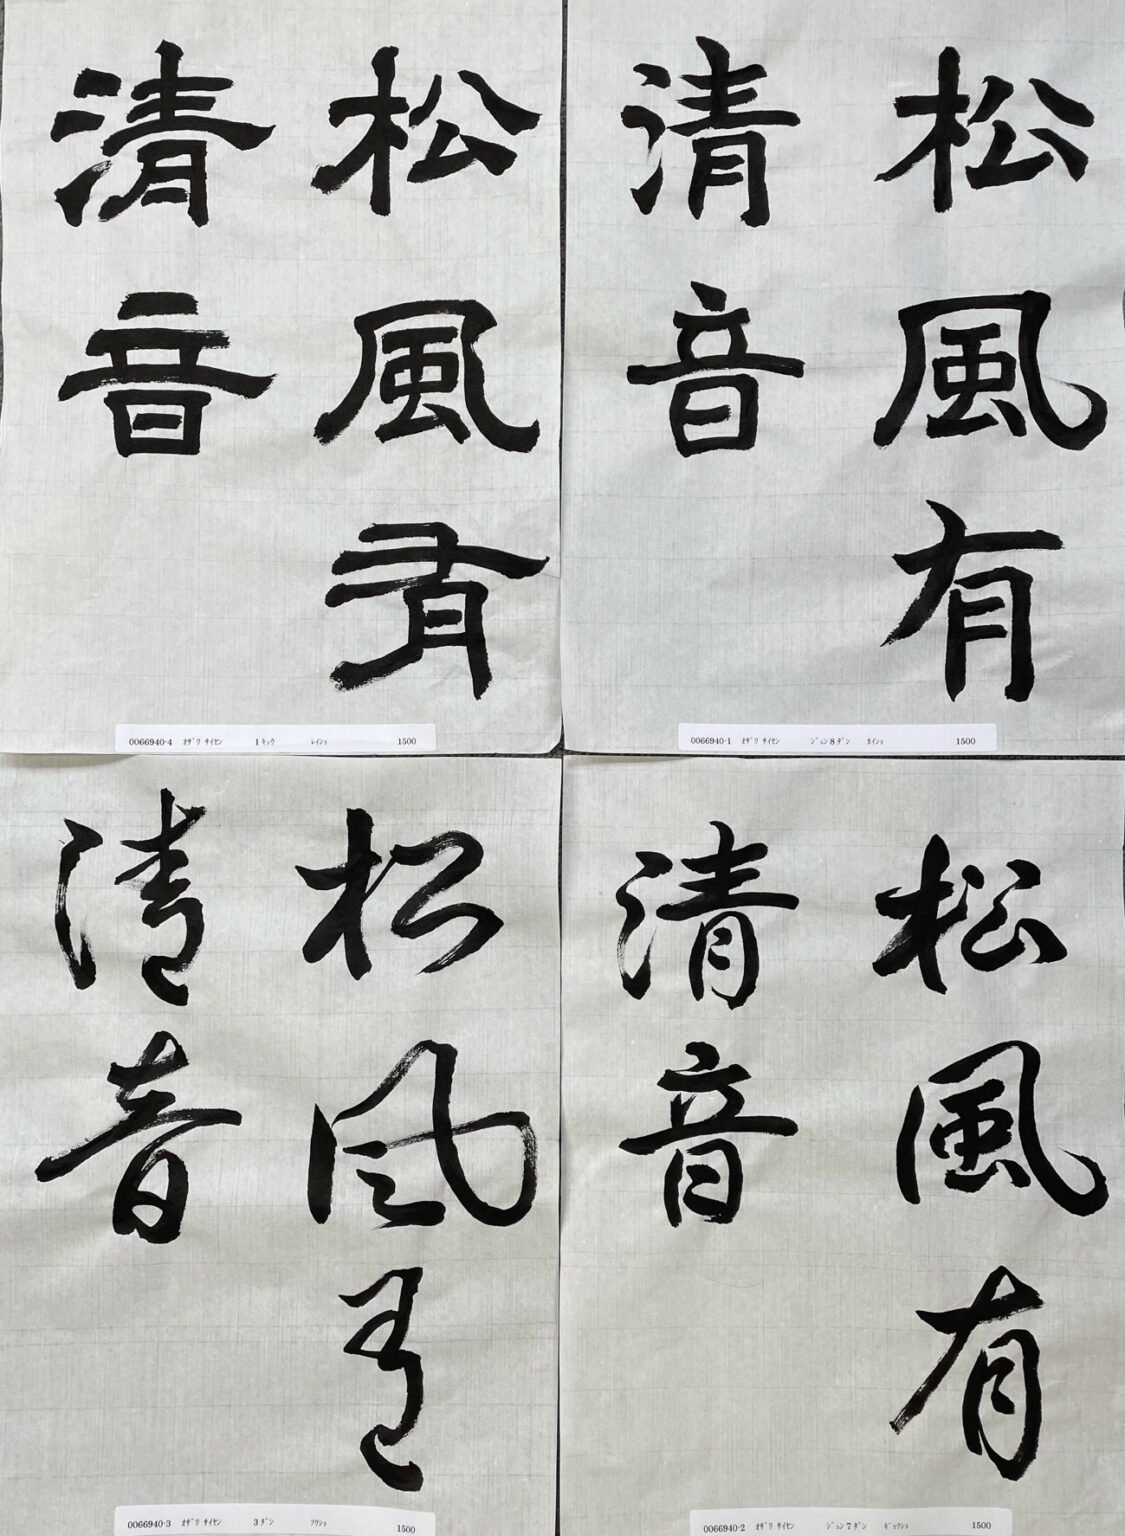 松風有
清音
0066940-1 オザワ サイセン ジュン8ダン カイショ 1500
松風有
清音
0066940-4 オザワ サイセン 1キュウ レイショ 1500
松風有
清音
0066940-2 オザワ サイセン ジュン7ダン ギョウショ 1500
松風有
清音
0066940-3 オザワ サイセン 3ダン ソウショ 1500